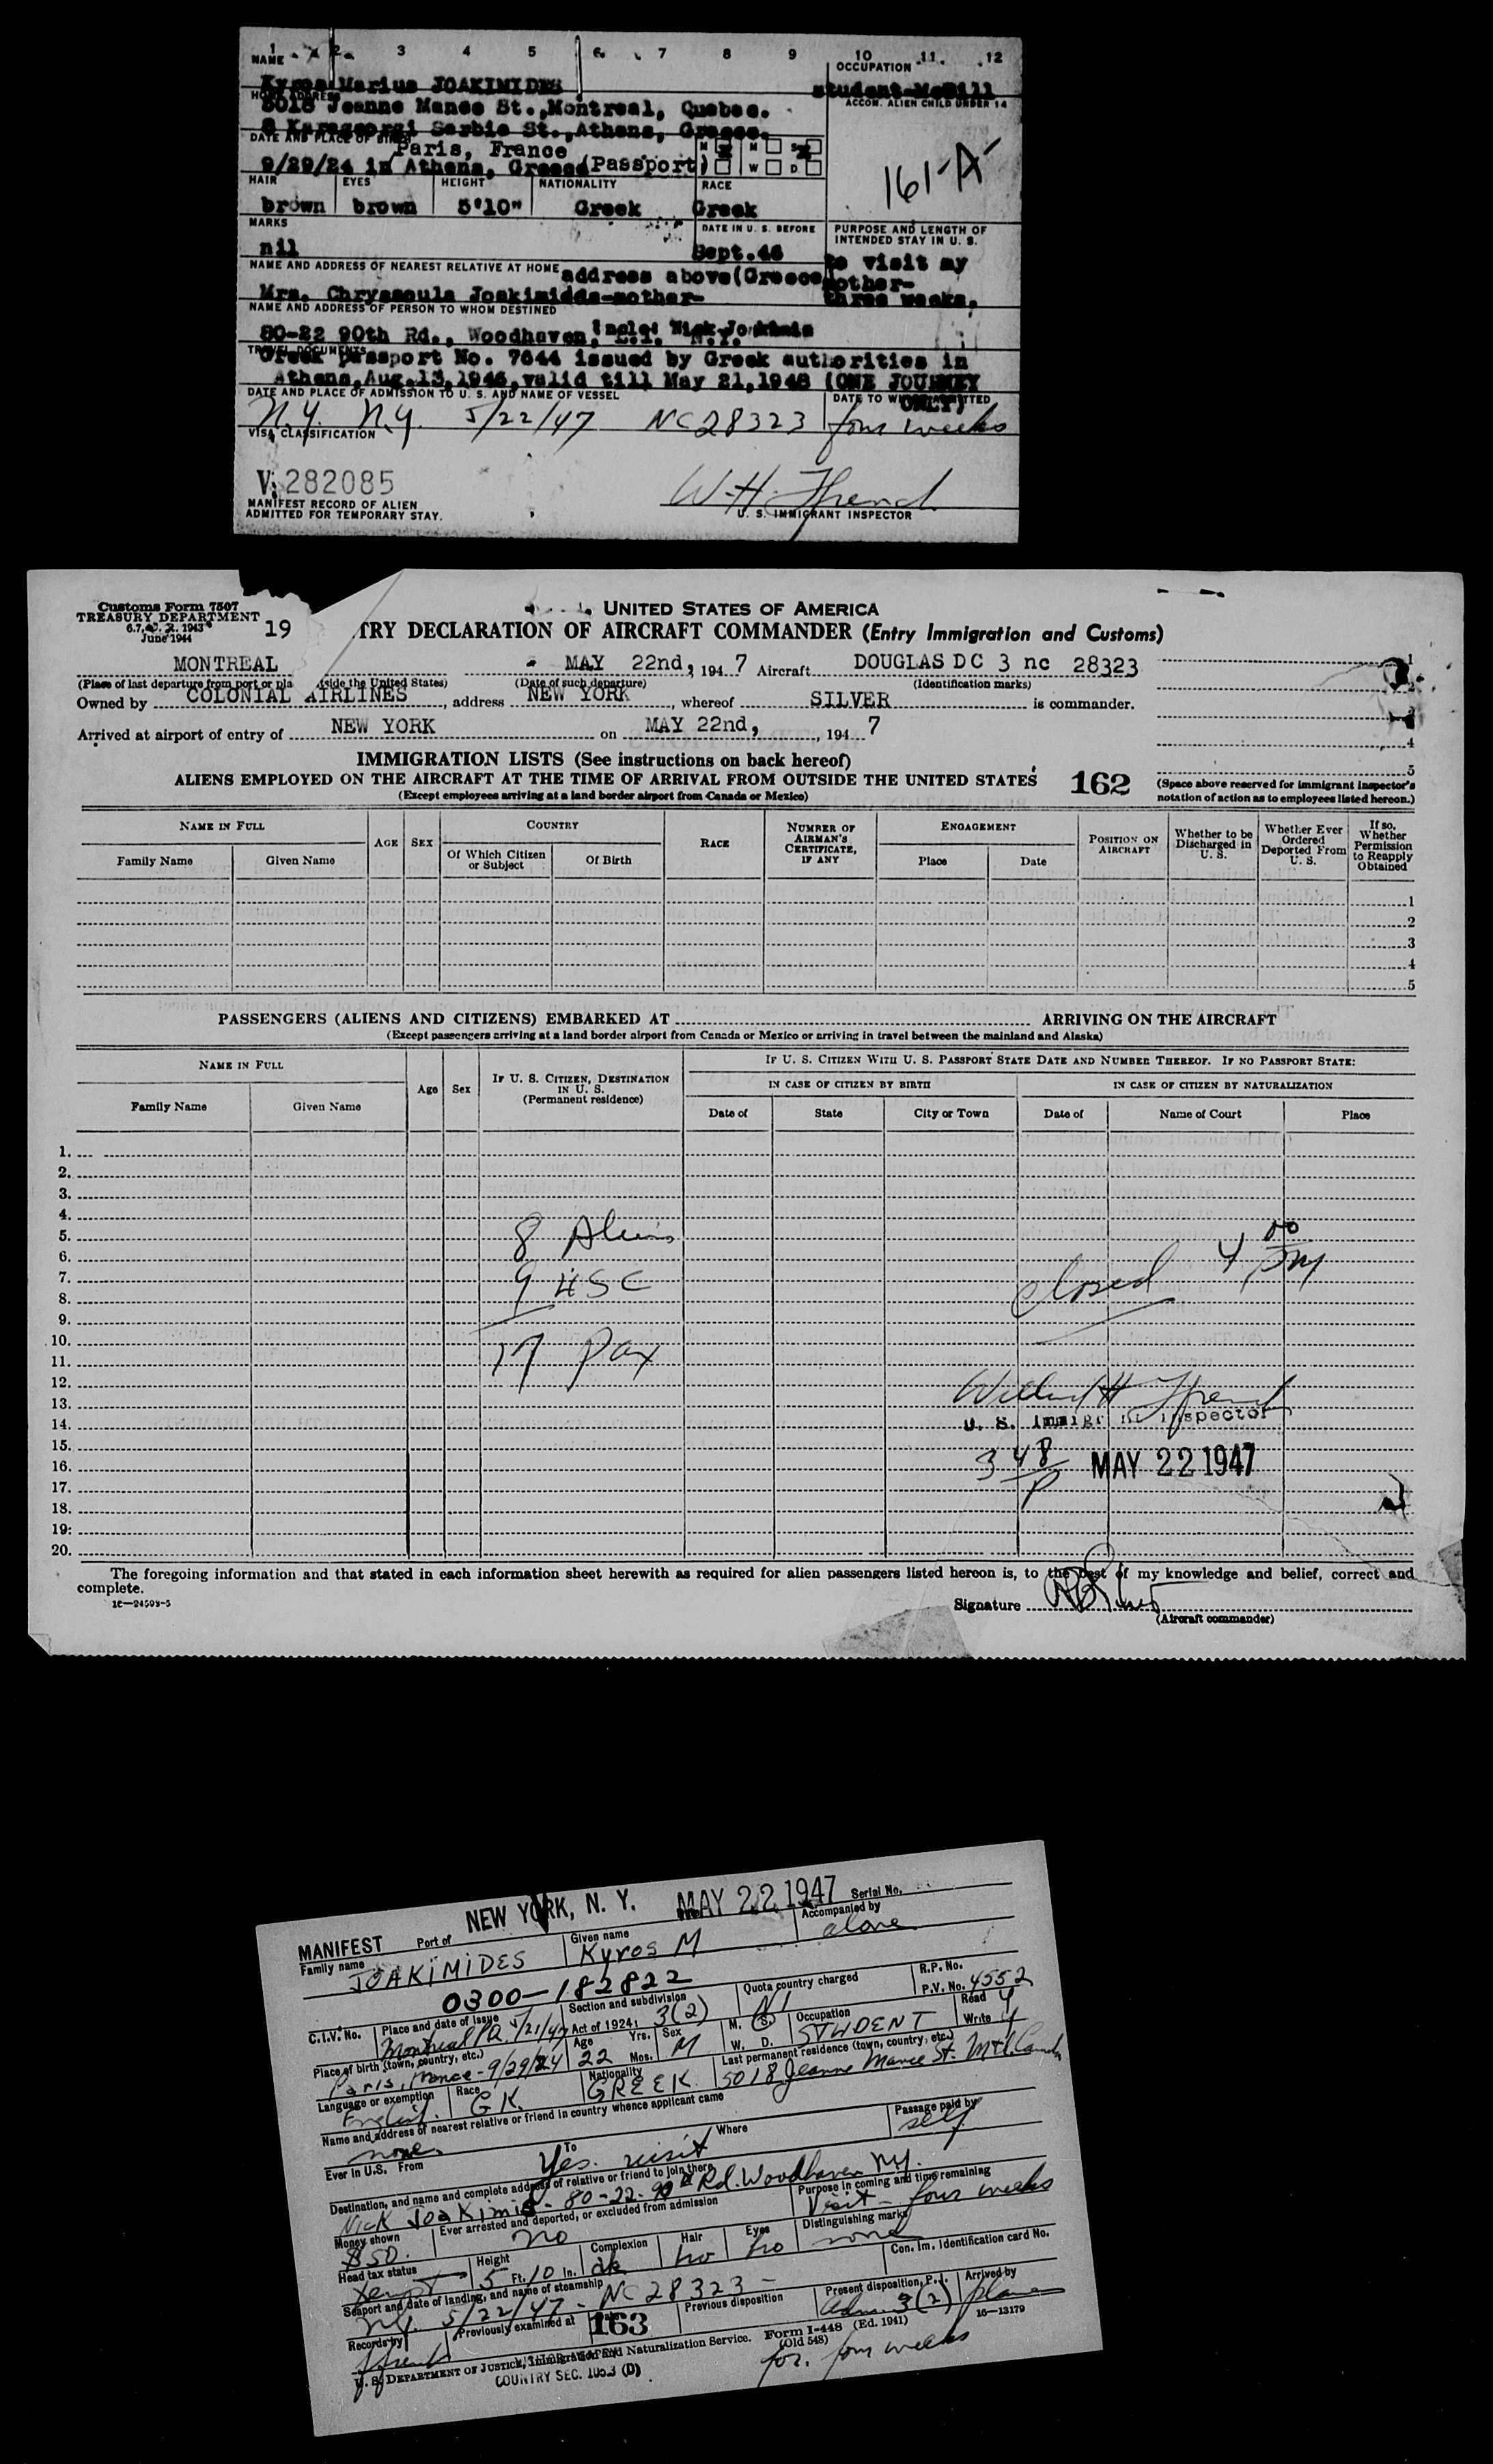 1 2 3 4 5 6 7 8 9 10 11 12
NAME
OCCUPATION
Kyros Marius JOAKIMIDES
student-McGill
HOME ADDRESS
ACCOM. ALIEN CHILD UNDER 14
5018 Jeanne Mance St., Montreal, Quebec.
8 Karageorgi Serbie St., Athens, Greece.
DATE AND PLACE OF BIRTH
Paris, France
M M S
9/29/24 in Athens, Greece (Passport)
W D
161-A
HAIR EYES HEIGHT NATIONALITY RACE
brown brown 5'10" Greek Greek
MARKS
DATE IN U. S. BEFORE
PURPOSE AND LENGTH OF
INTENDED STAY IN U. S.
nil
Sept.46
to visit my
NAME AND ADDRESS OF NEAREST RELATIVE AT HOME
address above (Greece
mother-
Mrs. Chryssoula Joakimidds-mother-
three weeks.
NAME AND ADDRESS OF PERSON TO WHOM DESTINED
Uncle: Nick Joakimis
80-22 90th Rd., Woodhaven, L.I. N.Y.
TRAVEL DOCUMENTS
Greek passport No. 7644 issued by Greek authorities in
Athens, Aug.13,1946, valid till May 21,1948 (ONE JOURNEY
ONLY)
DATE AND PLACE OF ADMISSION TO U. S. AND NAME OF VESSEL
DATE TO WHICH ADMITTED
N.Y. N.Y. 5/22/47 NC28323 four weeks
VISA CLASSIFICATION
V: 282085
MANIFEST RECORD OF ALIEN
ADMITTED FOR TEMPORARY STAY.
U. S. IMMIGRANT INSPECTOR
Customs Form 7507
TREASURY DEPARTMENT
June 1944
19
UNITED STATES OF AMERICA
TRY DECLARATION OF AIRCRAFT COMMANDER (Entry Immigration and Customs)
MONTREAL MAY 22nd, 1947 Aircraft DOUGLAS DC 3 nc 28323
(Place of last departure from port or pla tside the United States) (Date of such departure) (Identification marks)
Owned by COLONIAL AIRLINES, address NEW YORK, whereof SILVER is commander.
Arrived at airport of entry of NEW YORK on MAY 22nd, , 1947
1
2
4
5
IMMIGRATION LISTS (See instructions on back hereof)
ALIENS EMPLOYED ON THE AIRCRAFT AT THE TIME OF ARRIVAL FROM OUTSIDE THE UNITED STATES
162
(Except employees arriving at a land border airport from Canada or Mexico)
(Space above reserved for immigrant inspector's
notation of action as to employees listed hereon.)
NAME IN FULL
Family Name Given Name
AGE SEX
COUNTRY
Of Which Citizen or Subject Of Birth
RACE
NUMBER OF AIRMAN'S CERTIFICATE, IF ANY
ENGAGEMENT
Place Date
POSITION ON AIRCRAFT
Whether to be Discharged in U. S.
Whether Ever Ordered Deported From U. S.
If so, Whether Permission to Reapply Obtained
1
2
3
4
5
PASSENGERS (ALIENS AND CITIZENS) EMBARKED AT ARRIVING ON THE AIRCRAFT
(Except passengers arriving at a land border airport from Canada or Mexico or arriving in travel between the mainland and Alaska)
NAME IN FULL
Family Name Given Name
Age Sex
IF U. S. CITIZEN, DESTINATION IN U. S.
(Permanent residence)
IF U. S. CITIZEN WITH U. S. PASSPORT STATE DATE AND NUMBER THEREOF. IF NO PASSPORT STATE:
IN CASE OF CITIZEN BY BIRTH IN CASE OF CITIZEN BY NATURALIZATION
Date of State City or Town Date of Name of Court Place
1.
2.
3.
4.
5. 8 Aliens
6.
7. 9 USC closed 4 00 pm
8.
9.
10. 17 Pax
11.
12.
13.
14. U. S. Immigrant Inspector
15.
16. 3 48 P MAY 22 1947
17.
18.
19.
20.
The foregoing information and that stated in each information sheet herewith as required for alien passengers listed hereon is, to the best of my knowledge and belief, correct and
complete.
Signature
(Aircraft commander)
NEW YORK, N. Y. MAY 22 1947 Serial No.
MANIFEST Port of
Family name Given name Accompanied by
JOAKIMIDES Kyros M alone
0300-182822
C.I.V. No. Place and date of issue Section and subdivision Quota country charged R.P. No.
P.V. No. 4552
Montreal PQ 5/21/47 Act of 1924: 3(2) NI
Place of birth (town, country, etc.) Age Yrs. Mos. Sex M. S. W. D. Occupation Read Y Write Y
Paris, France-9/29/24 22 M STUDENT
Language or exemption Race Nationality Last permanent residence (town, country, etc.)
English. GK. GREEK 5018 Jeanne Mance St. Mtl. Canda
Name and address of nearest relative or friend in country whence applicant came
none
Ever in U.S. From To Where Passage paid by
Yes. visit self
Destination, and name and complete address of relative or friend to join there
Nick Joakimis - 80-22-90th Rd. Woodhaven NY.
Purpose in coming and time remaining
Visit - four weeks
Money shown Ever arrested and deported, or excluded from admission
$50. no
Head tax status Height Complexion Hair Eyes Distinguishing marks
5 Ft. 10 In. dk bro bro none
Con. Im. Identification card No.
Seaport and date of landing, and name of steamship
N.Y. 5/22/47 - NC 28323 -
Records by Previously examined at Previous disposition Present disposition, P.I. Arrived by
163 adm 3(2) plane
U. S. DEPARTMENT OF JUSTICE, Immigration and Naturalization Service. Form I-448 (Ed. 1941) 16-13179
(Old 548)
COUNTRY SEC. 105.3 (D)
for. four weeks